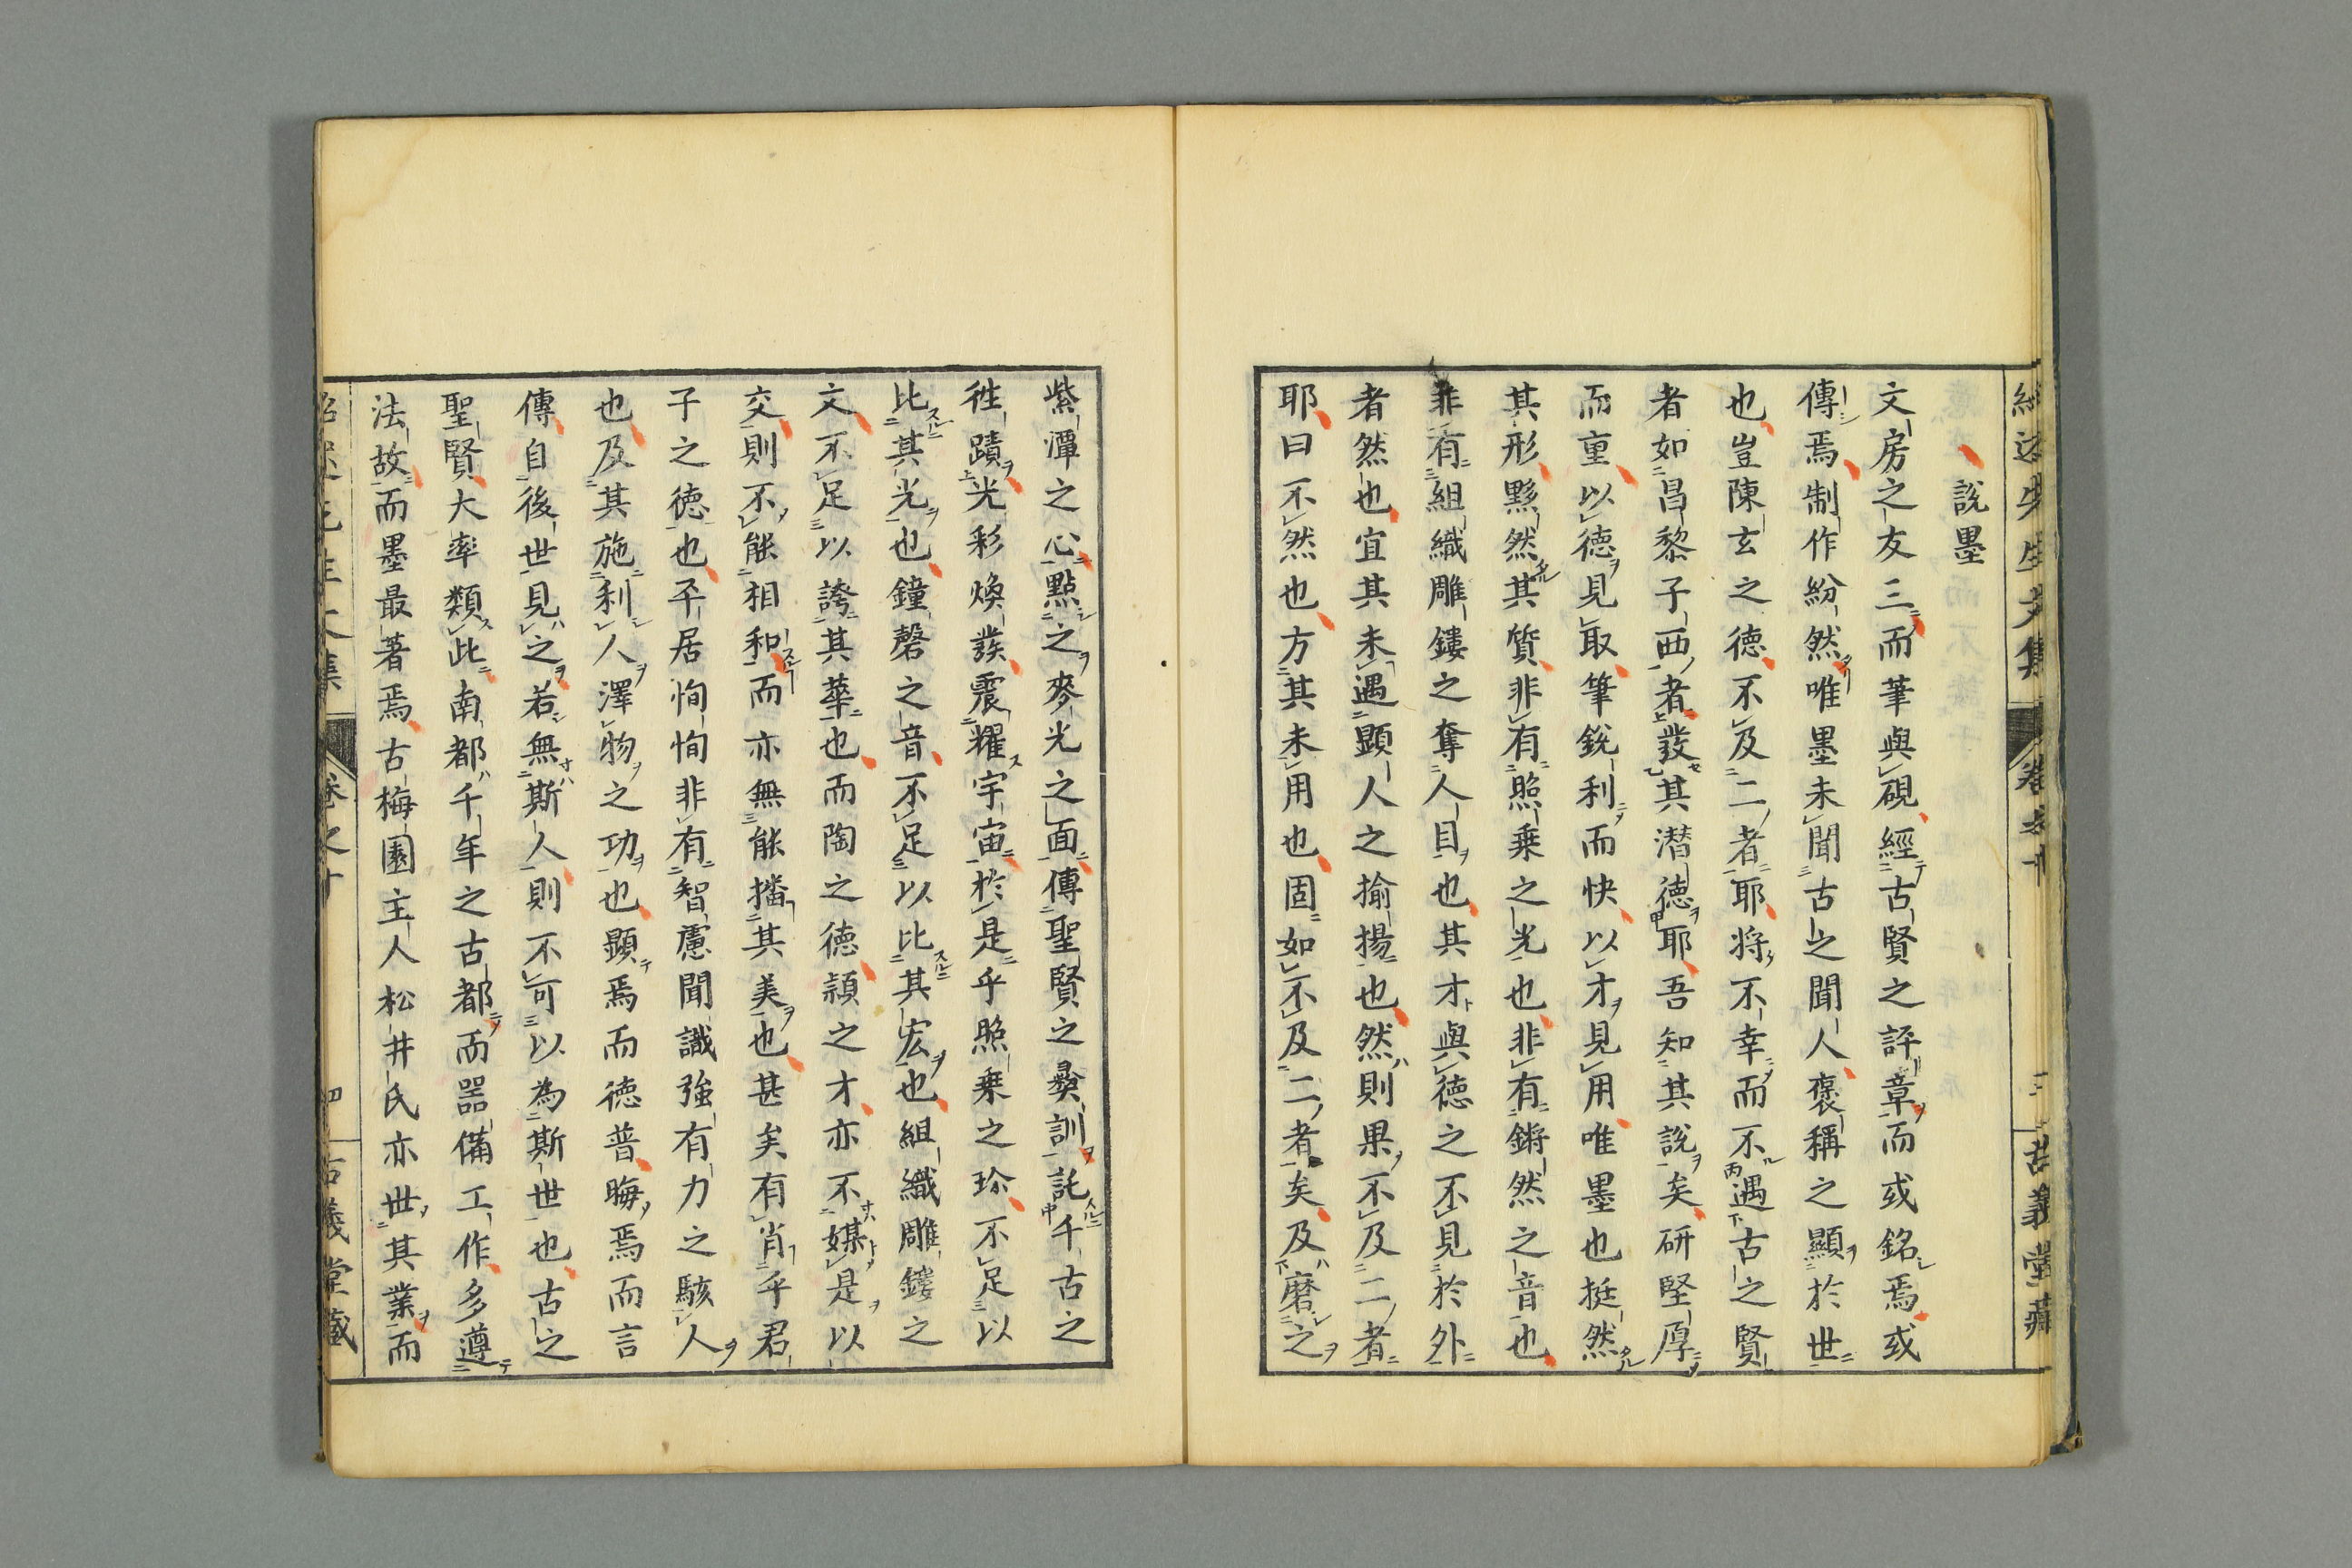 紹述先生文集 卷之十 三 古義堂藏
說墨
文房之友三而筆與硯經古賢之評章而或銘焉或
傳焉制作紛然唯墨未聞古之聞人褒稱之顯於世
也豈陳玄之德不及二者耶將不幸而不遇古之賢
者如昌黎子西者發其潛德耶吾知其說矣研堅厚
而重以德見取筆銳利而快以才見用唯墨也挺然
其形黟然其質非有照乘之光也非有鏘然之音也
非有組織雕鏤之奪人目也其才與德之不見於外
者然也宜其未遇顯人之揄揚也然則果不及二者
耶曰不然也方其未用也固如不及二者矣及磨之
紫潭之心點之麥光之面傳聖賢之彝訓託千古之
徃蹟光彩煥發震耀宇宙於是乎照乘之珍不足以
比其光也鐘磬之音不足以比其宏也組織雕鏤之
文不足以誇其華也而陶之德潁之才亦不媒是以
交則不能相和而亦無能播其美也甚矣有肖乎君
子之德也平居恂恂非有智慮聞識強有力之駭人
也及其施利人澤物之功也顯焉而德普晦焉而言
傳自後世見之若無斯人則不可以為斯世也古之
聖賢大率類此南都千年之古都而器備工作多遵
法故而墨最著焉古梅園主人松井氏亦世其業而
紹述先生文集 卷之十 四 古義堂藏